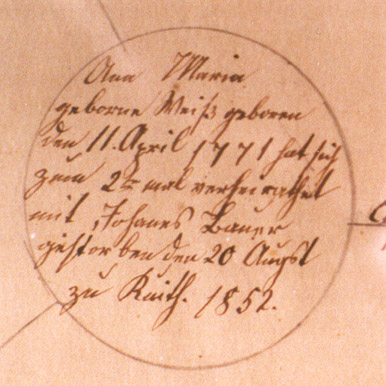 Ana Maria
geborne Weiß geboren
den 11. April 1771 hat sich
zum 2t mal verheirathet
mit Johanes Bauer
gestorben den 20 Augst
zu Raith. 1852.